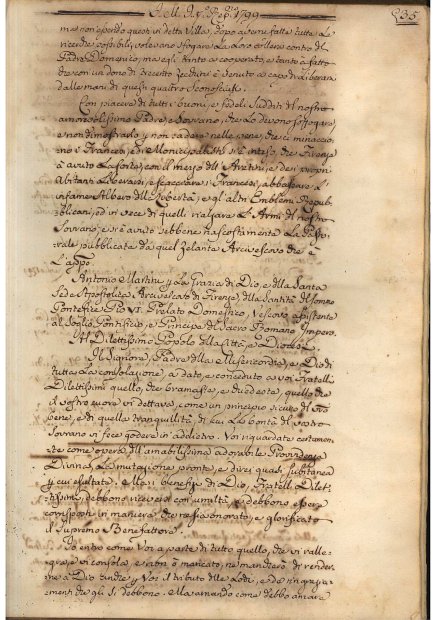 A dì 9. 7bre 1799 535
ma non essendo questi in detta Villa, dopo avere fatte tutte le
ricerche possibili, volevano sfogare la loro collera contro il
Padre Domenico, ma egli tanto si cooperò, e tanto à fatto
che con un dono di trecento Zecchini è venuto a capo di liberarsi
dalle mani di questi quattro Sconosciuti.
Con piacere di tutti i buoni, e fedeli Sudditi del nostro
amorosissimo Padre, e Sovrano, che lo devono soffogare,
e non dimostrarlo p non cadere nelle pene, che ci minacciano
i Francesi, ed i Municipalisti si è inteso, che Firenze
à avuto la sorte, con il mezzo degl' Aretini, e dei propri
Abitanti liberarsi, e scacciare i Francesi, abbassare l'
infame Albero della Libertà, e gl' altri Emblemi Repub-
blicani, ed in vece di quelli rialzare l' Armi del nostro
Sovrano, e si è avuto sebbene nascostamente la Pasto-
rale pubblicata da quel zelante Arcivescovo che è
l' appo
Antonio Martini p la Grazia di Dio, e della Santa
Sede Apostolica Arcivescovo di Firenze, della Santità di Sommo
Pontefice Pio VI. Prelato Domestico, Vescovo assistente
al Soglio Pontificio, e Principe del Sacro Romano Impero.
Al Dilettissimo Popolo della Città, e Diocesi.
Il Signore, Padre delle Misericordie, e Dio di
tutta la consolazione, à dato, e conceduto a voi Fratelli
Dilettissimi quello, che bramaste, e chiedeste, quello che
il vostro cuore vi dettava, come un principio sicuro del vostro
bene, e di quella tranquillità, di cui la bontà del vostro
Sovrano vi fece godere in addietro. Voi riguardate certamen-
te come opera dell' amabilissima adorabile Provvidenza
Divina, la mutazione pronta, e direi quasi subitanea
p cui esultate. Ma i benefizi di Dio, Fratelli Dilet-
tissimi, debbono riceversi con umiltà, e debbono essere
corrisposti in maniera che resti onorato, e glorificato
il Supremo Benefattore.
Io entro come Voi a parte di tutto quello, che vi ralle-
gra, e vi consola, e non ò mancato, nè mancherò di render-
ne a Dio anche p Voi il tributo delle Lodi, e di ringrazia-
menti che gli si debbono. Ma amando come debbo amare